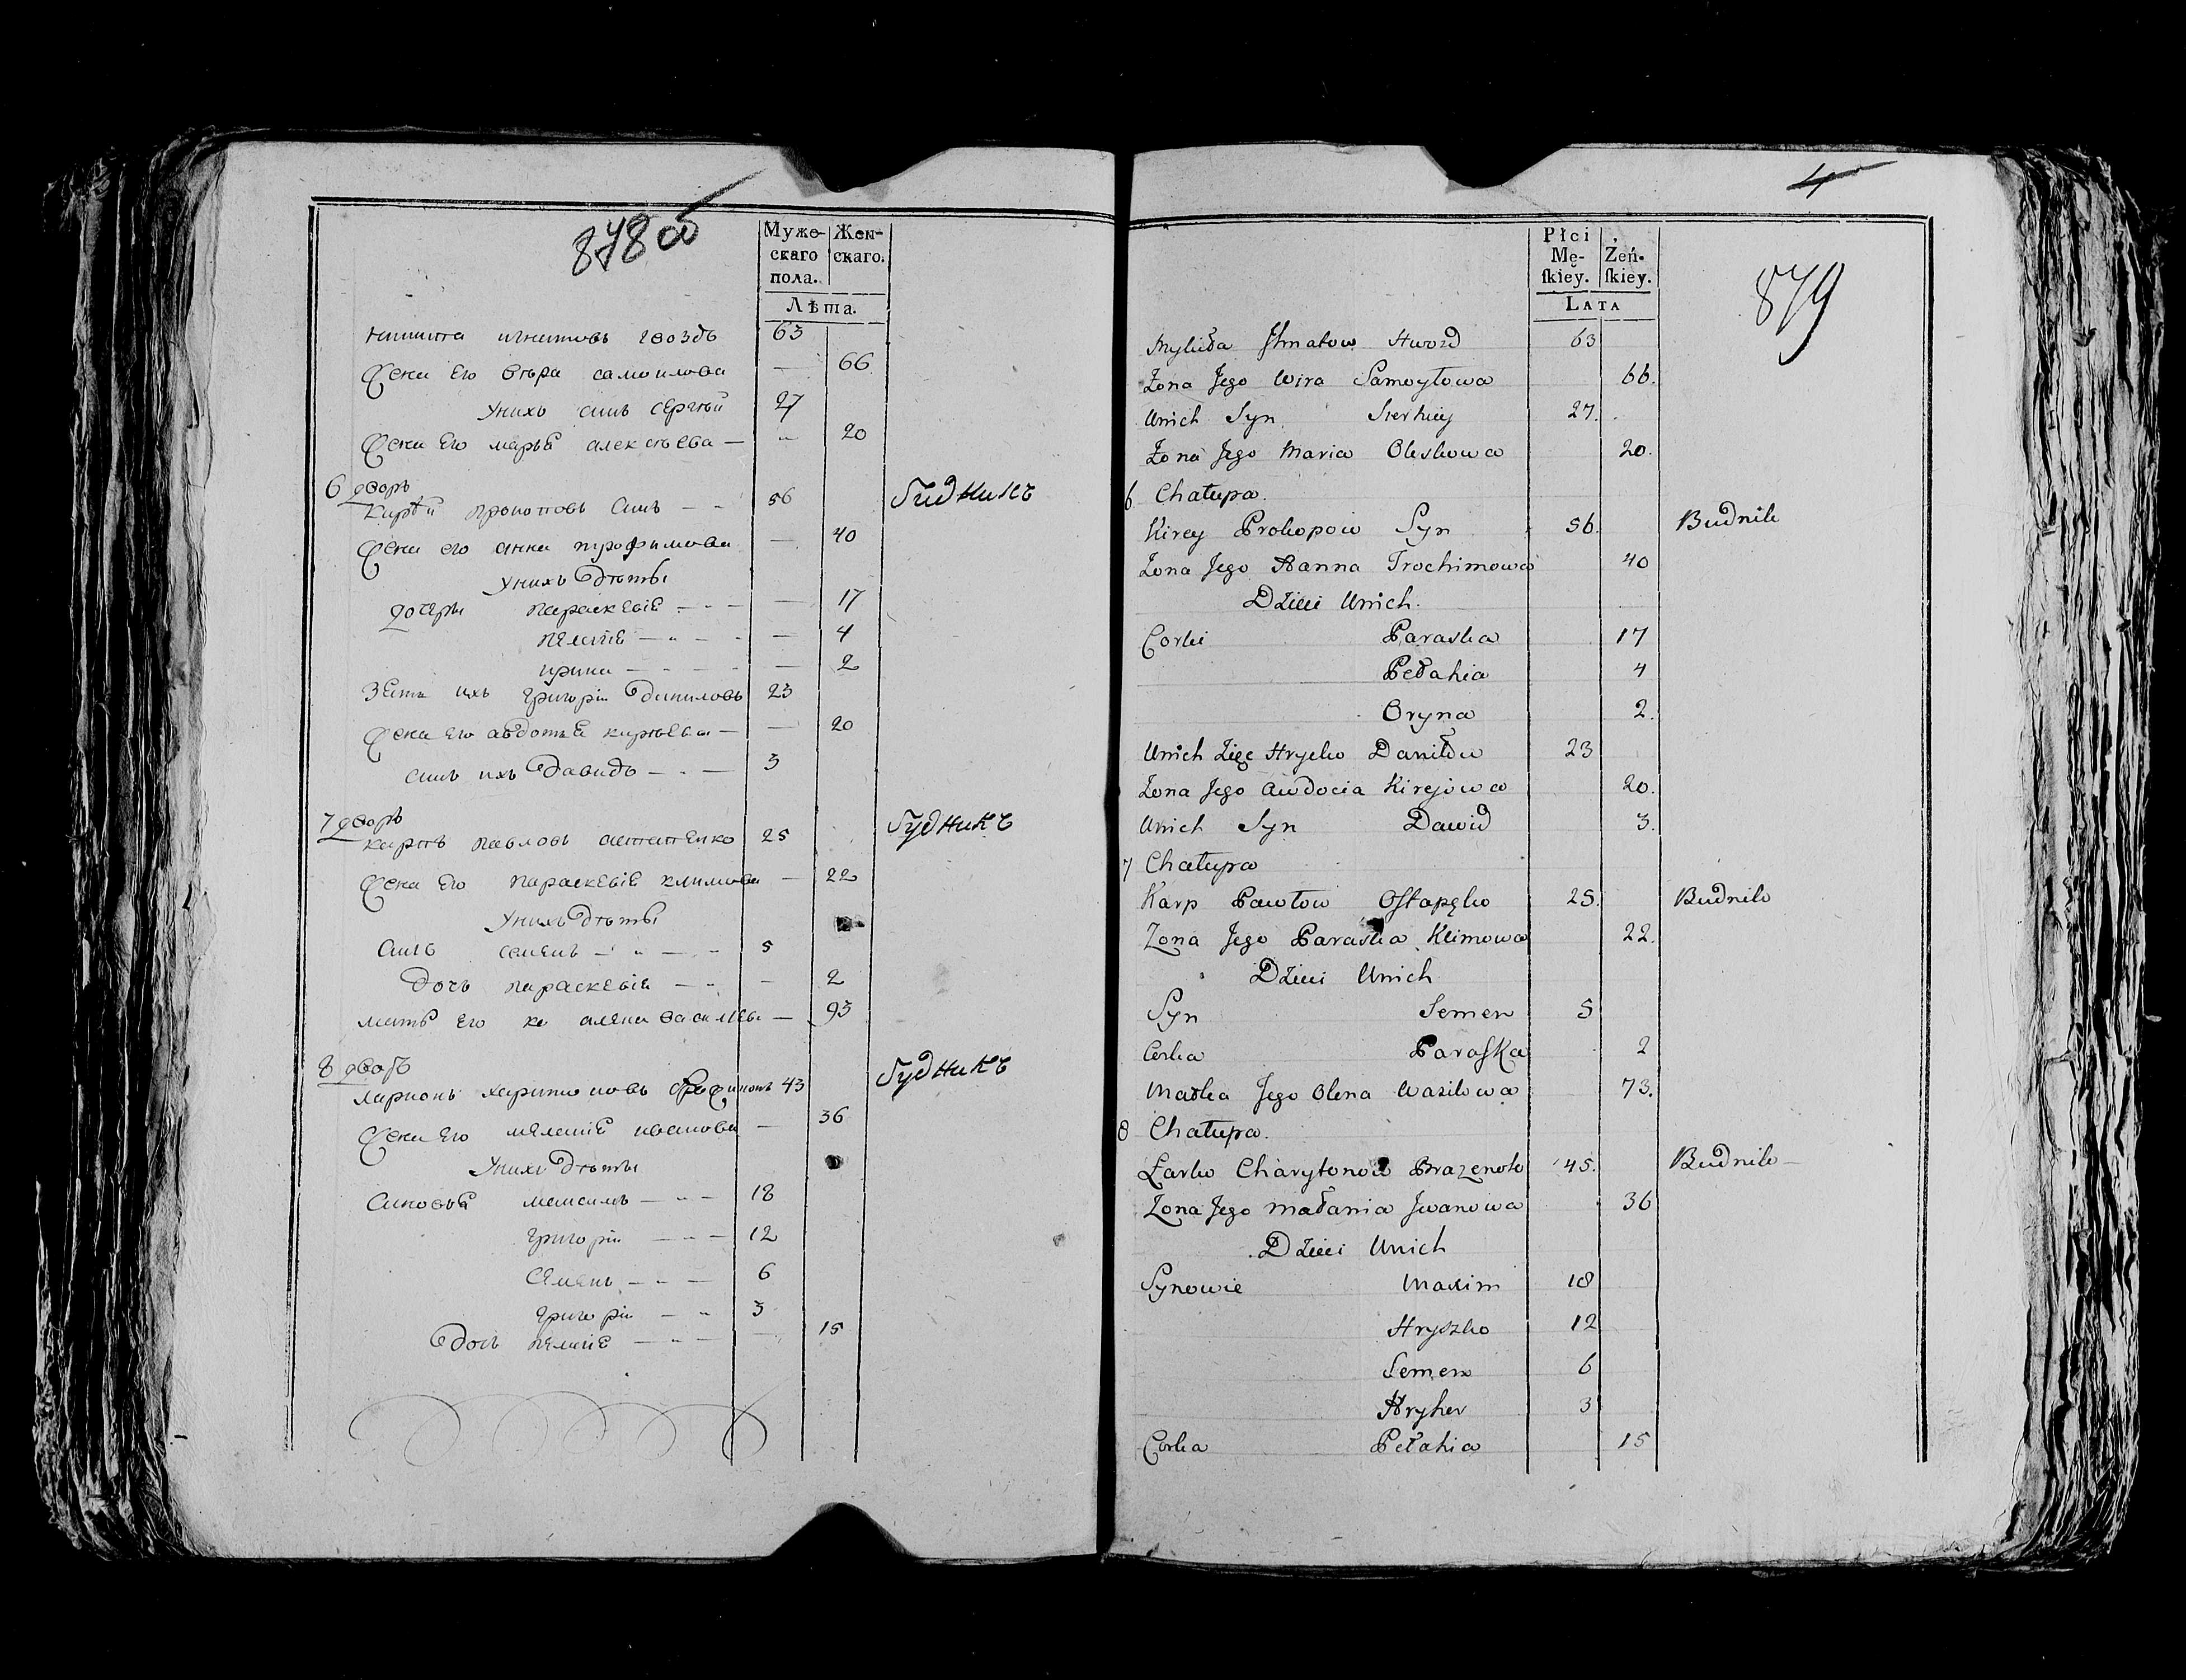 878 об
Муже-
скаго
пола.
Жен-
скаго.
Лѣта.
никита игнатовъ гвоздь 63
Жена Его вѣра самоилова — 66
Унихъ сынъ сергѣй 27
Жена Его марья алексѣева — 20
6 дворъ
Кирѣй прокоповъ сынъ 56 Будникъ
Жена его анна трофимова — 40
Унихъ дѣты
дочеры параскевія — 17
пелагія — 4
ирина — 2
Зять ихъ григорій даниловъ 23
Жена Его авдотья кирѣева — 20
сынъ ихъ давидъ — 3
7 дворъ
карпъ павловъ остапенко 25 Будникъ
Жена Его параскевія климова — 22
Унихъ дѣты
Сынъ семенъ — 5
дочъ параскевія — 2
мать Его алена василева — 93
8 дворъ
ларионъ харитоновъ 43 Будникъ
Жена Его меланія иванова — 36
Унихъ дѣты
Сыновья максимъ — 18
григорій — 12
Семенъ — 6
григорій — 3
дочъ пелагія — 15
4
879
Płci
Mę-
ſkiey.
Żeń-
ſkiey.
LATA
Mykita Ihnatow Hwozd 63
Żona Jego Wira Samoyłowa 66.
Unich Syn Serhiiy 27.
Żona Jego Maria Oleskowa 20.
6 Chałupa.
Kirey Prokopow Syn 56. Budnik
Żona Jego Hanna Trochimowa 40
Dzieci Unich.
Corki Paraska 17
Pełahia 4
Oryna 2.
Unich Zięć Hryćko Daniłow 23
Żona Jego Awdocia Kirejowa 20.
Unich Syn Dawid 3.
7 Chałupa
Karp Pawłow Oſtapęko 25. Budnik
Żona Jego Paraska Klimowa 22.
Dzieci Unich
Syn Semen 5
Corka Paraſka 2
Matka Jego Olena Wasilowa 73.
8 Chałupa.
Łarko Charytonow 45. Budnik —
Żona Jego Małania Jwanowa 36
Dzieci Unich
Synowie Maxim 18
Hryszko 12
Semen 6
Hryher 3
Corka Pełahia 15